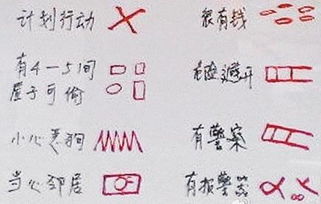 计划行动
很有钱
有4-5间
屋子可偷
危险避开
小心恶狗
有警察
当心邻居
有报警器